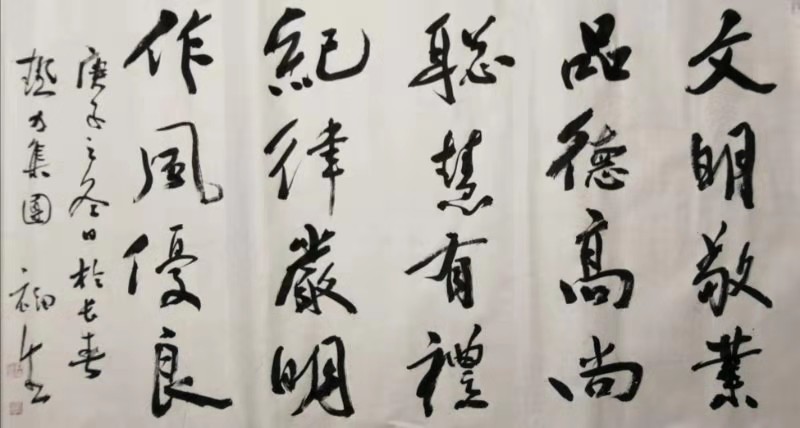 文明敬業
品德高尚
聡慧有禮
紀律嚴明
作風優良
庚子之冬日於长春
集團